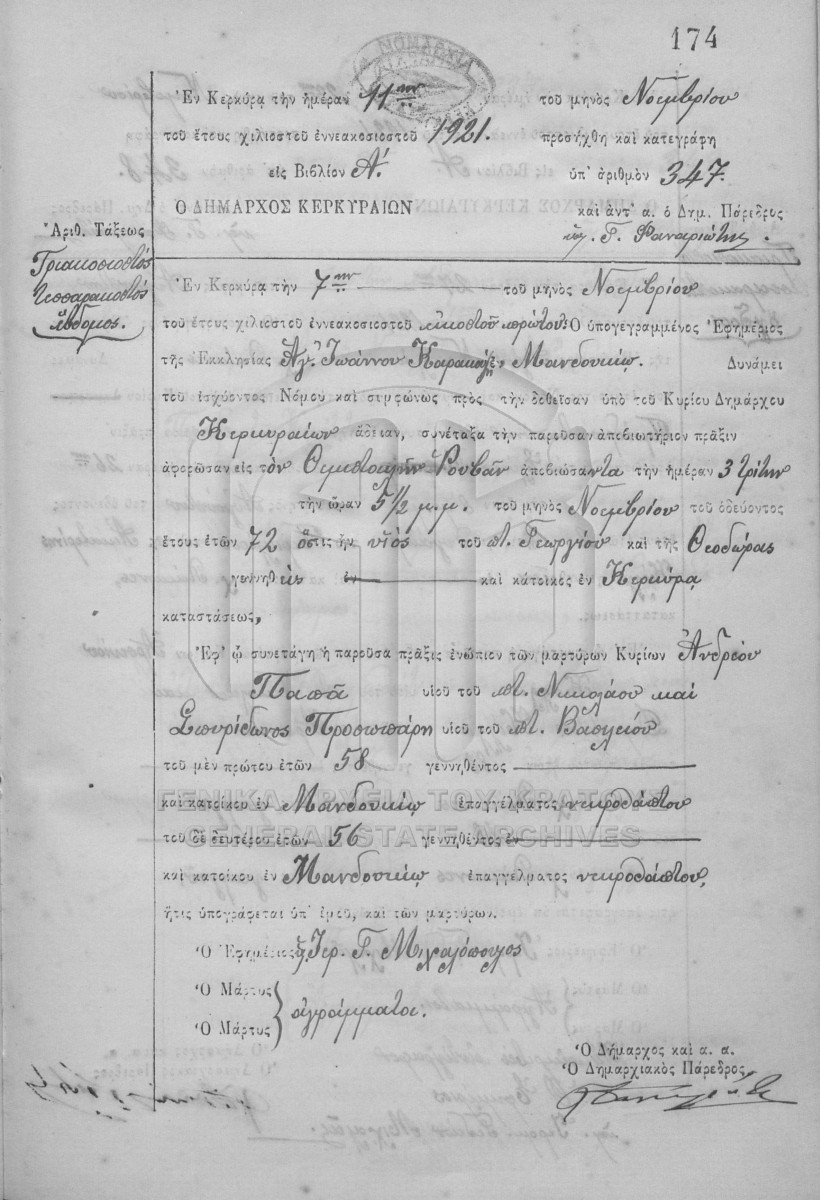 174
ΝΟΜΑΡΧΙΑ
Ἐν Κερκύρᾳ τὴν ἡμέραν 11ην τοῦ μηνὸς Νοεμβρίου
τοῦ ἔτους χιλιοστοῦ ἐννεακοσιοστοῦ 1921. προσήχθη καὶ κατεγράφη
εἰς Βιβλίον Α΄. ὑπ' ἀριθμὸν 347.
Ὁ ΔΗΜΑΡΧΟΣ ΚΕΡΚΥΡΑΙΩΝ καὶ ἀντ' α. ὁ Δημ. Πάρεδρος
Γ. Φαναριώτης.
Ἀριθ. Τάξεως
Τριακοσιοστός
τεσσαρακοστός
ἕβδομος.
Ἐν Κερκύρᾳ τὴν 7ην τοῦ μηνὸς Νοεμβρίου
τοῦ ἔτους χιλιοστοῦ ἐννεακοσιοστοῦ εἰκοστοῦ πρώτου Ὁ ὑπογεγραμμένος Ἐφημέριος
τῆς Ἐκκλησίας Ἁγ. Ἰωάννου Μανδουκίῳ. Δυνάμει
τοῦ ἰσχύοντος Νόμου καὶ συμφώνως πρὸς τὴν δοθεῖσαν ὑπὸ τοῦ Κυρίου Δημάρχου
Κερκυραίων ἄδειαν, συνέταξα τὴν παροῦσαν ἀποβιωτήριον πρᾶξιν
ἀφορῶσαν εἰς τὸν Θεμιστοκλῆν Ῥουβᾶν ἀποβιώσαντα τὴν ἡμέραν 3 τρίτην
τὴν ὥραν 5 1/2 μ.μ. τοῦ μηνὸς Νοεμβρίου τοῦ ὁδεύοντος
ἔτους ἐτῶν 72 ὅστις ἦν υἱὸς τοῦ ποτ. Γεωργίου καὶ τῆς Θεοδώρας
γεννηθεὶς ἐν καὶ κάτοικος ἐν Κερκύρᾳ
καταστάσεως,
Ἐφ' ᾧ συνετάγη ἡ παροῦσα πρᾶξις ἐνώπιον τῶν μαρτύρων Κυρίων Ἀνδρέου
Παπᾶ υἱοῦ τοῦ ποτ. Νικολάου καὶ
Σπυρίδωνος Προσωπάρη υἱοῦ τοῦ ποτ. Βασιλείου
τοῦ μὲν πρώτου ἐτῶν 58 γεννηθέντος
καὶ κατοίκου ἐν Μανδουκίῳ ἐπαγγέλματος νεκροθάπτου
ΓΕΝΙΚΑ ΑΡΧΕΙΑ ΤΟΥ ΚΡΑΤΟΥΣ
GENERAL STATE ARCHIVES
τοῦ δὲ δευτέρου ἐτῶν 56 γεννηθέντος ἐν
καὶ κατοίκου ἐν Μανδουκίῳ ἐπαγγέλματος νεκροθάπτου,
ἥτις ὑπογράφεται ὑπ' ἐμοῦ, καὶ τῶν μαρτύρων.
Ὁ Ἐφημέριος Ἱερ. Γ. Μιχαλόπουλος
Ὁ Μάρτυς
Ὁ Μάρτυς
ἀγράμματοι.
Ὁ Δήμαρχος καὶ α. α.
Ὁ Δημαρχιακὸς Πάρεδρος